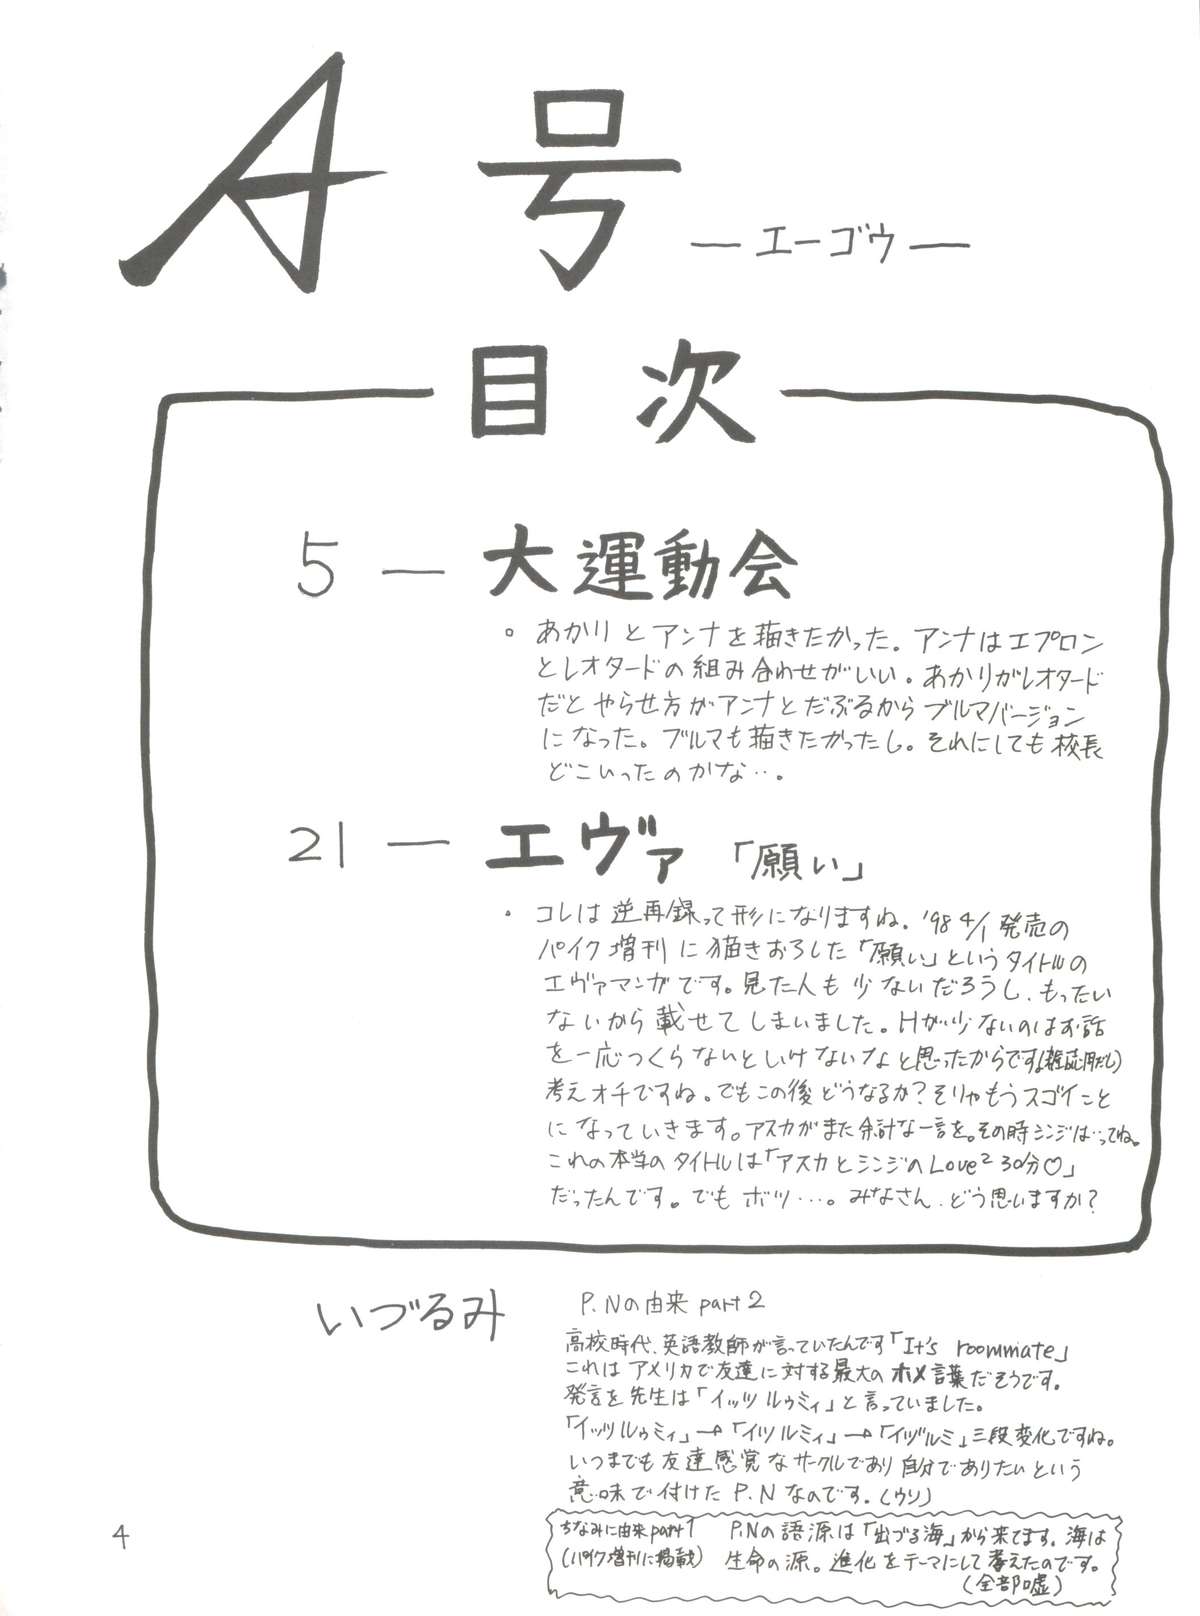 A号
―エーゴウ―
目次
5 ― 大運動会
。あかりとアンナを描きたかった。アンナはエプロン
とレオタードの組み合わせがいい。あかりがレオタード
だとやらせ方がアンナとだぶるからブルマバージョン
になった。ブルマも描きたかったし。それにしても校長
どこいったのかな…。
21 ― エヴァ「願い」
・コレは逆再録って形になりますね。'98 4/1発売の
パイク増刊に描きおろした「願い」というタイトルの
エヴァマンガです。見た人も少ないだろうし、もったい
ないから載せてしまいました。Hが少ないのはお話
を一応つくらないといけないなと思ったからです
考えオチですね。でもこの後どうなるか?そりゃもうスゴイこと
になっていきます。アスカがまた余計な一言を。その時シンジは…ってね。
これの本当のタイトルは「アスカとシンジのLove² 30分♡」
だったんです。でもボツ…。みなさん、どう思いますか?
いづるみ
P.Nの由来 part 2
高校時代、英語教師が言っていたんです「It's roommate」
これはアメリカで友達に対する最大のホメ言葉だそうです。
発言を先生は「イッツルゥミィ」と言っていました。
「イッツルゥミィ」→「イツルミィ」→「イヅルミ」三段変化ですね。
いつまでも友達感覚なサークルであり自分でありたいという
意味で付けたP.Nなのです。(ウソ)
ちなみに由来part1
(パイク増刊に掲載)
P.Nの語源は「出づる海」から来てます。海は
生命の源。進化をテーマにして考えたのです。
(全部嘘)
4